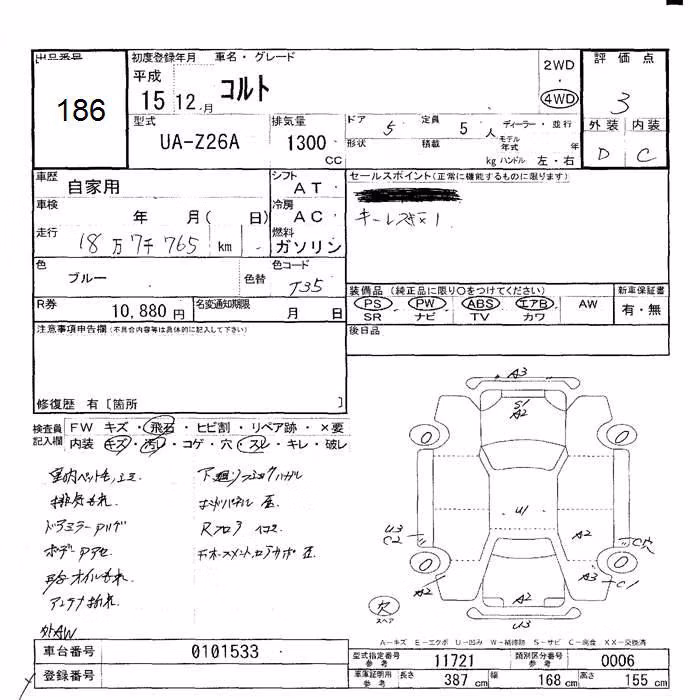 出品番号
186
初度登録年月 車名・グレード
平成
15 12.月
コルト
2WD
・
4WD
評価点
3
外装 内装
D C
型式
UA-Z26A
排気量
1300
CC
ドア 5 定員 5 人 ディーラー・並行
形状 積載 kg モデル年式 年
ハンドル 左・右
車歴
自家用
シフト
AT
車検
年 月( 日)
冷房
AC
走行
18万7千765 km
燃料
ガソリン
色
ブルー
色替
色コード
T35
R券
10,880 円
名変通知期限
月 日
セールスポイント(正常に機能するものに限ります)
キーレスx1
装備品 (純正品に限り〇をつけてください)
PS PW ABS エアB AW
SR ナビ TV カワ
新車保証書
有・無
後日品
注意事項申告欄(不具合内容等は具体的に記入して下さい)
修復歴 有[箇所 ]
検査員
記入欄
FW キズ・飛石・ヒビ割・リペア跡・×要
内装 キズ・汚れ・コゲ・穴・スレ・キレ・破レ
室内ペット毛、シミ
排気もれ
ドアミラーAハゲ
ボデーアアセ
E/Gオイルもれ
アンテナ折れ
外AW
A3
S1
A2
U1
A2
U3
C2
A2
A3
C1
A2
U3
欠
スペア
A-キズ E-エクボ U-凹み W-補修跡 S-サビ C-腐食 XX-交換済
車台番号
0101533
登録番号
型式指定番号
参考
11721
類別区分番号
参考
0006
車庫証明用
参考
長さ 387 cm 幅 168 cm 高さ 155 cm